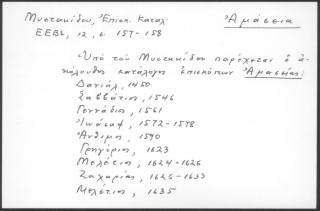 Μυστακίδου, Ἐπισκ. Καταλ. Ἀμάσεια
ΕΕΒΣ, 12, σ. 157-158
Ὑπὸ τοῦ Μυστακίδου παρέχεται ὁ ἀ-
κόλουθος κατάλογος ἐπισκόπων Ἀμασείας:
Δανιήλ, 1450
Σαββάτιος, 1546
Γεννάδιος, 1561
Ἰωάσαφ, 1572-1578
Ἄνθιμος, 1590
Γρηγόριος, 1623
Μελέτιος, 1624-1626
Ζαχαρίας, 1626-1633
Μελέτιος, 1635